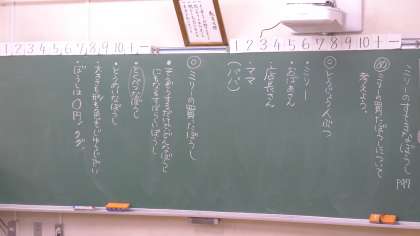 ミリーのすてきなぼうし
P99
め ミリーが買ったぼうしについて
考えよう。
◎とくじょう人ぶつ
・ミリー
・おばあさん
・店長さん
・ママ
(パパ)
◎ミリーの買ったぼうし
・そうぞうするだけでどんなぼうし
にもなるすばらしいぼうし
・とくべつなぼうし
・とうめいなぼうし
・大きさも形も色もじゆうじざい
・ぼうしは0円。タダ。
1 2 3 4 5 6 7 8 9 10 + −
1 2 3 4 5 6 7 8 9 10 + −